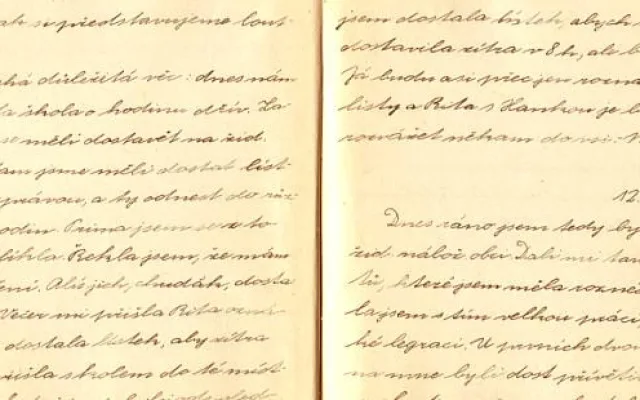 ak si představujeme lout-
há důležitá věc: dnes nám
la škola o hodinu dřív. Za
se měli dostavět na žid.
am jsme měli dostat list
zprávou, a ty odnest do růz
odin. Prima jsem se z to
líkla. Řekla jsem, že mám
ení. Ališ jich, chudák, dosta
Večer mi přišla Rita
dostala lístek, aby zítra
řišla s kolem do té míst-
jsem dostala lístek, abych
dostavila zítra v 8 h, ale
Já budu asi přec jen
listy a Rita s Hankou je
rozvážet někam do vsi.
12.
Dnes ráno jsem tedy by
žid. nábož. obci. Dali mi
které jsem měla rozné
la jsem s tím velkou prác
ké legrací. U prvních dvou
na mne byli dost přívěti